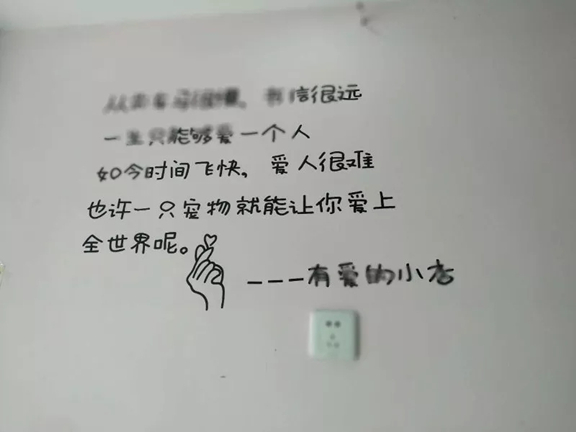 从前车马很慢，书信很远
一生只能够爱一个人
如今时间飞快，爱人很难
也许一只宠物就能让你爱上
全世界呢。
---有爱的小店